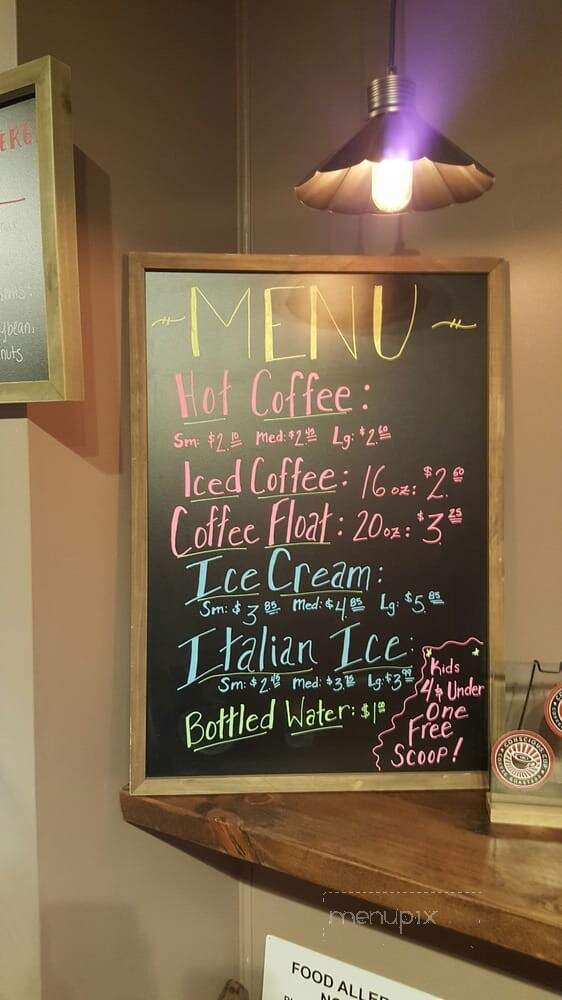 MENU
Hot Coffee:
Sm: $2.10 Med: $2.45 Lg: $2.60
Iced Coffee: 16oz: $2.60
Coffee Float: 20oz: $3.25
Ice Cream:
Sm: $3.85 Med: $4.85 Lg: $5.85
Italian Ice:
Sm: $2.45 Med: $3.15 Lg: $3.99
Bottled Water: $1.00
Kids
4 & Under
One
Free
Scoop!
nuts
CONSCIOUS
menupix
FOOD ALLER